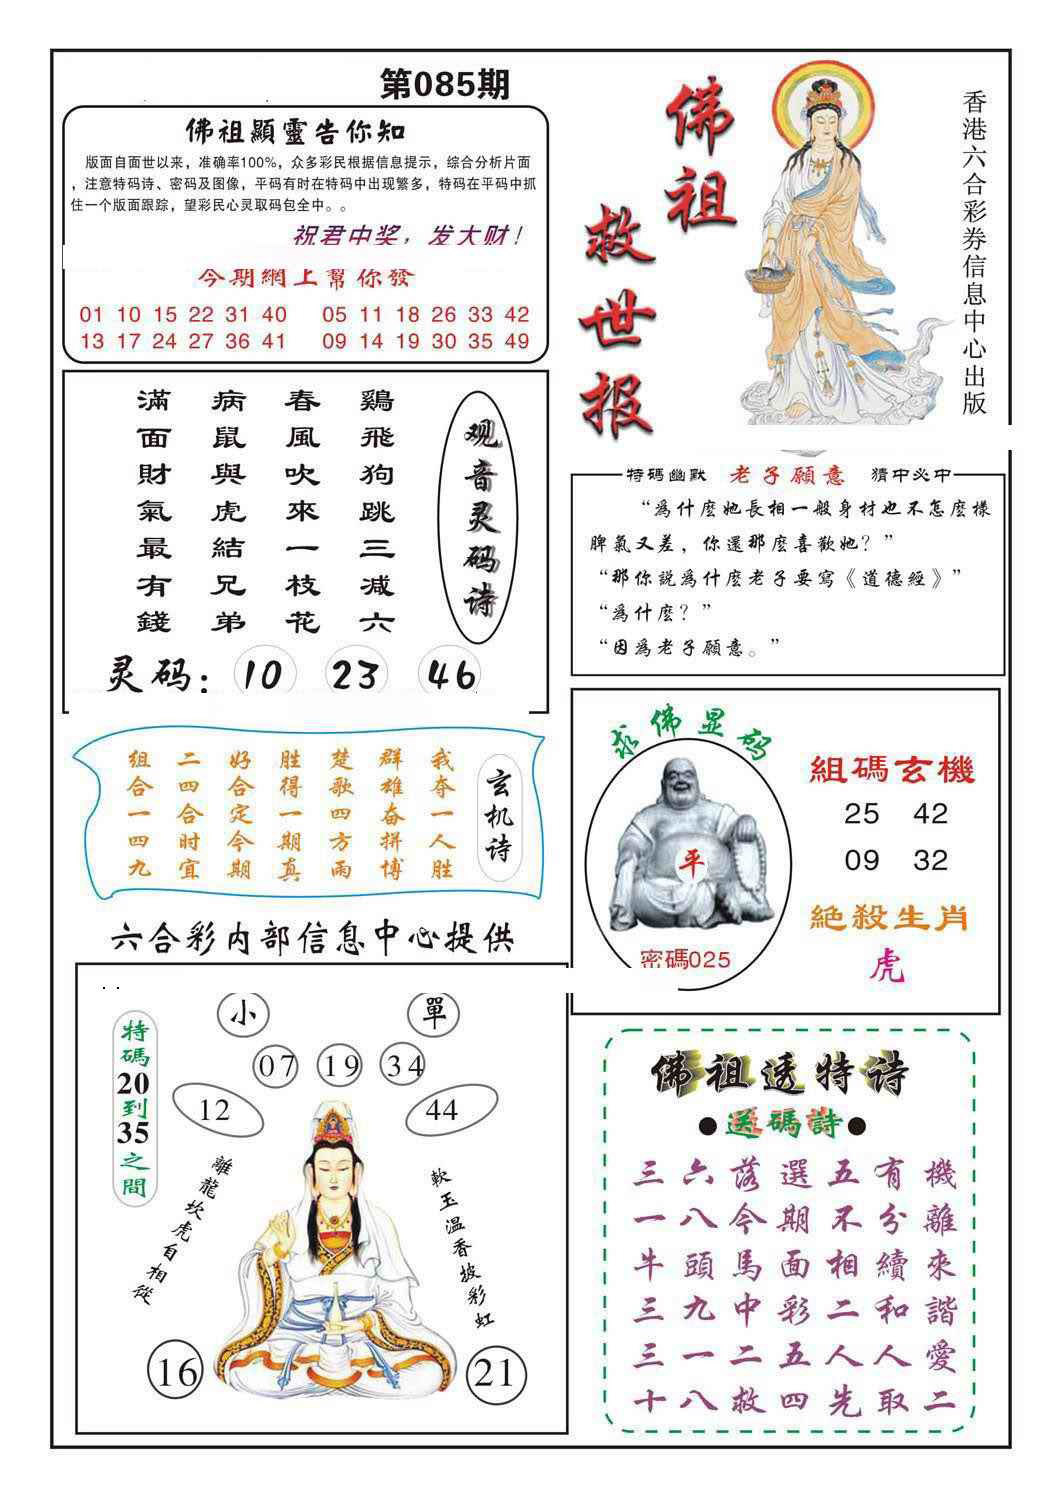 第085期
佛祖顯靈告你知
版面自面世以来，准确率100%，众多彩民根据信息提示，综合分析片面
，注意特码诗、密码及图像，平码有时在特码中出现繁多，特码在平码中抓
住一个版面跟踪，望彩民心灵取码包全中。。
祝君中奖，发大财！
今期網上幫你發
01 10 15 22 31 40 05 11 18 26 33 42
13 17 24 27 36 41 09 14 19 30 35 49
佛祖
救世报
香港六合彩券信息中心出版
观音灵码诗
鷄飛狗跳三减六
春風吹來一枝花
病鼠與虎結兄弟
滿面財氣最有錢
灵码：10 23 46
特碼幽默 老子願意 猜中必中
“爲什麽她長相一般身材也不怎麽樣
脾氣又差，你還那麽喜歡她？”
“那你説爲什麽老子要寫《道德經》”
“爲什麽？”
“因爲老子願意。”
玄机诗
我夺一人胜
群雄奋拼博
楚歌四方雨
胜得一期真
好合定今期
二四合时宜
组合一四九
求佛显码
平
密碼025
組碼玄機
25 42
09 32
絶殺生肖
虎
六合彩内部信息中心提供
特碼20到35之間
小 單
07 19 34
12 44
離龍坎虎自相從
軟玉温香披彩虹
16 21
佛祖透特诗
●送碼詩●
三六落選五有機
一八今期不分離
牛頭馬面相續來
三九中彩二和諧
三一二五人人愛
十八救四先取二